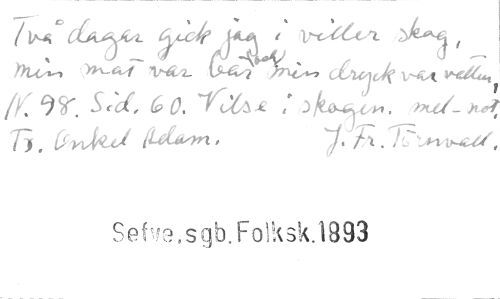 Två dagar gick jag i viller skog,
min mat var bär och min dryck var vatten,
N. 98. Sid. 60. Vilse i skogen. mel-not.
Tr. Onkel Adam. J. Fr. Törnvall.
Sefve, sgb. Folksk. 1893